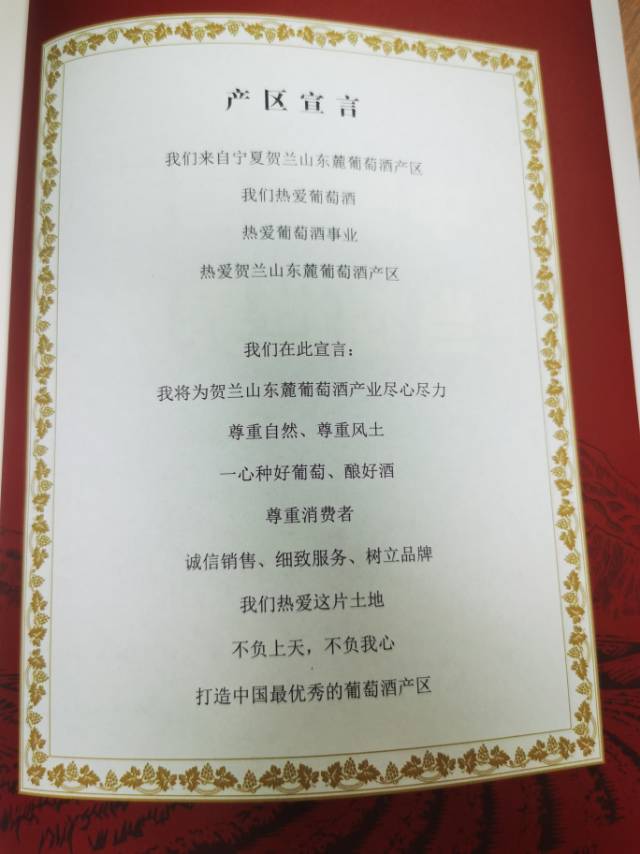 产区宣言
我们来自宁夏贺兰山东麓葡萄酒产区
我们热爱葡萄酒
热爱葡萄酒事业
热爱贺兰山东麓葡萄酒产区
我们在此宣言：
我将为贺兰山东麓葡萄酒产业尽心尽力
尊重自然、尊重风土
一心种好葡萄、酿好酒
尊重消费者
诚信销售、细致服务、树立品牌
我们热爱这片土地
不负上天，不负我心
打造中国最优秀的葡萄酒产区